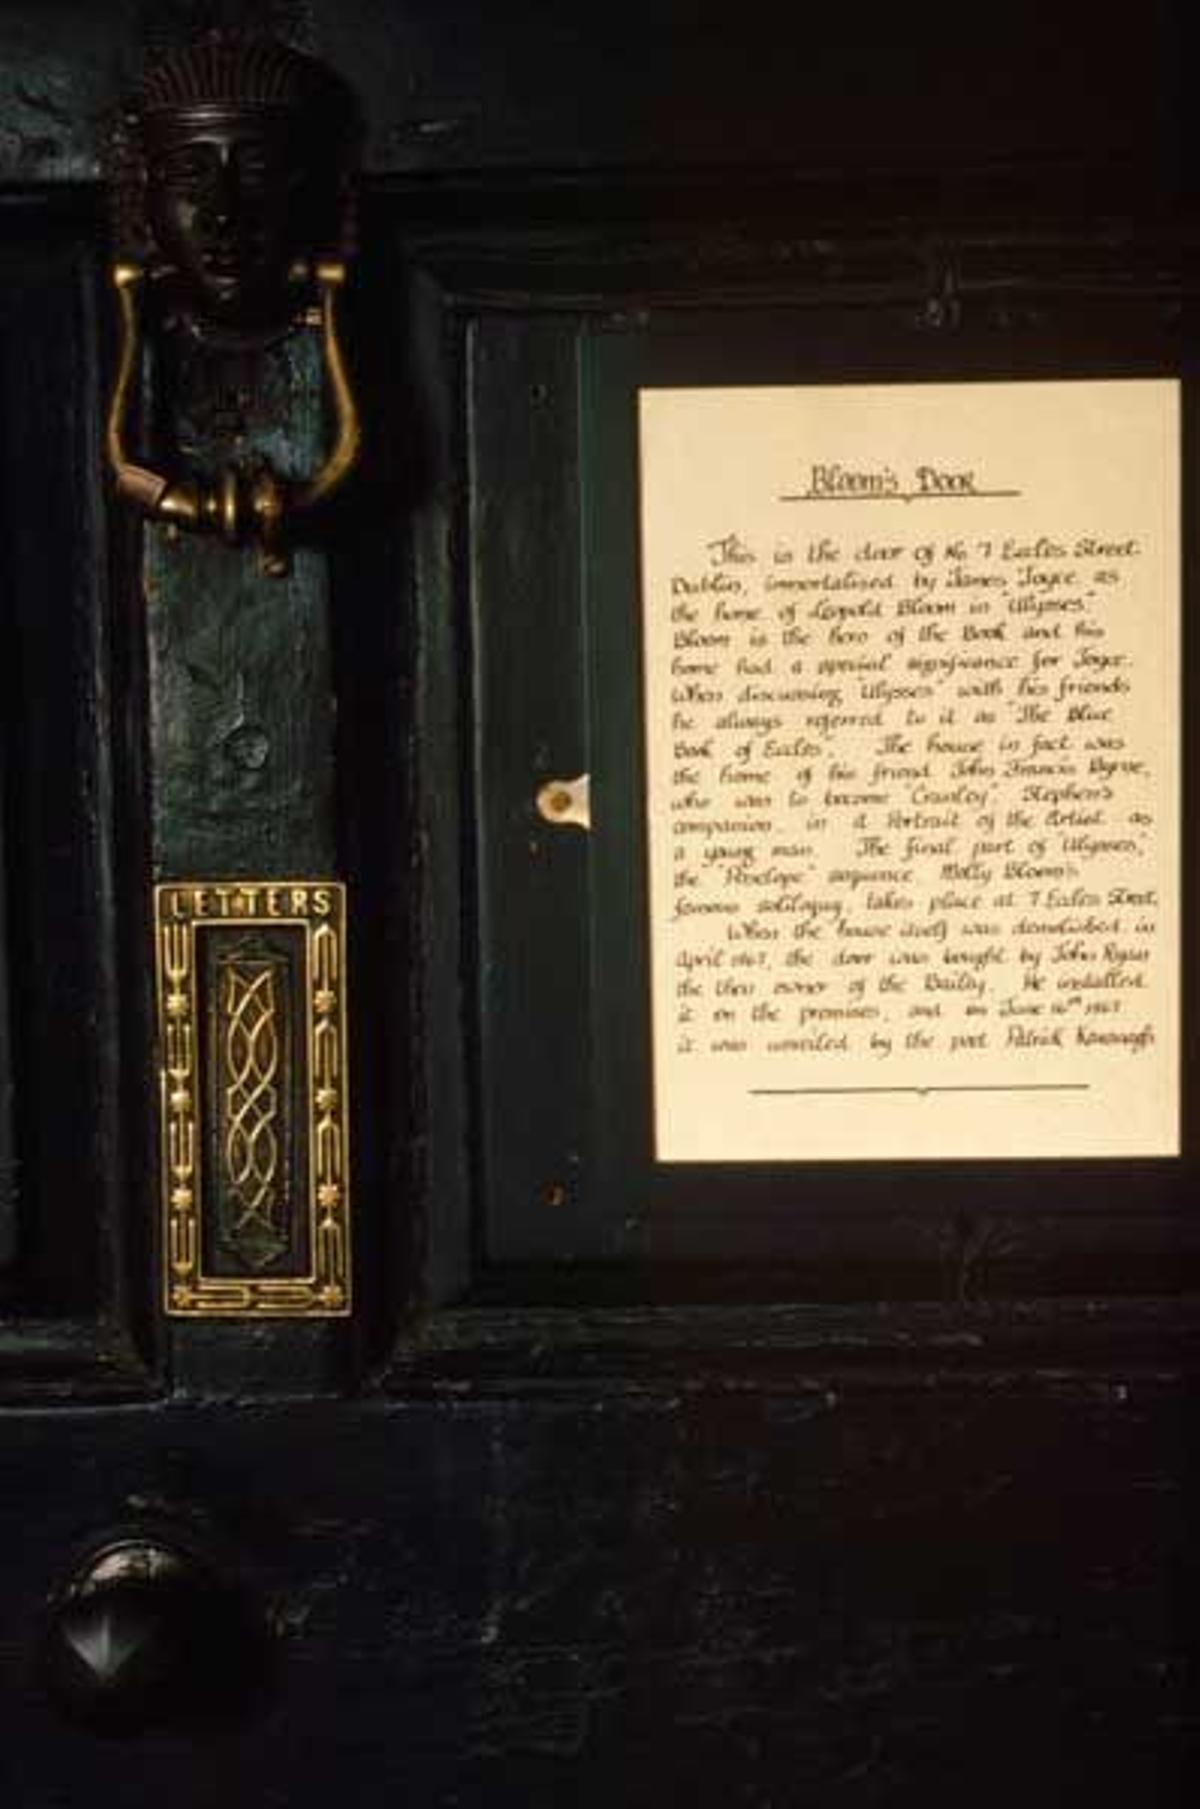 LETTERS
Bloom's Door
This is the door of No 7 Eccles Street.
Dublin, immortalised by James Joyce as
the home of Leopold Bloom in "Ulysses."
Bloom is the hero of the Book and his
home had a special significance for Joyce.
When discussing "Ulysses" with his friends
he always referred to it as "The Blue
Book of Eccles". The house in fact was
the home of his friend John Francis Byrne,
who was to become "Cranley", Stephen's
companion in a Portrait of the Artist as
a young man. The final part of "Ulysses,"
the "Penelope" sequence Molly Bloom's
famous soliloquy, takes place at 7 Eccles Street.
When the house itself was demolished in
April 1967, the door was bought by John Ryan
the then owner of the Bailey. He installed
it on the premises, and on June 16th 1967
it was unveiled by the poet Patrick Kavanagh